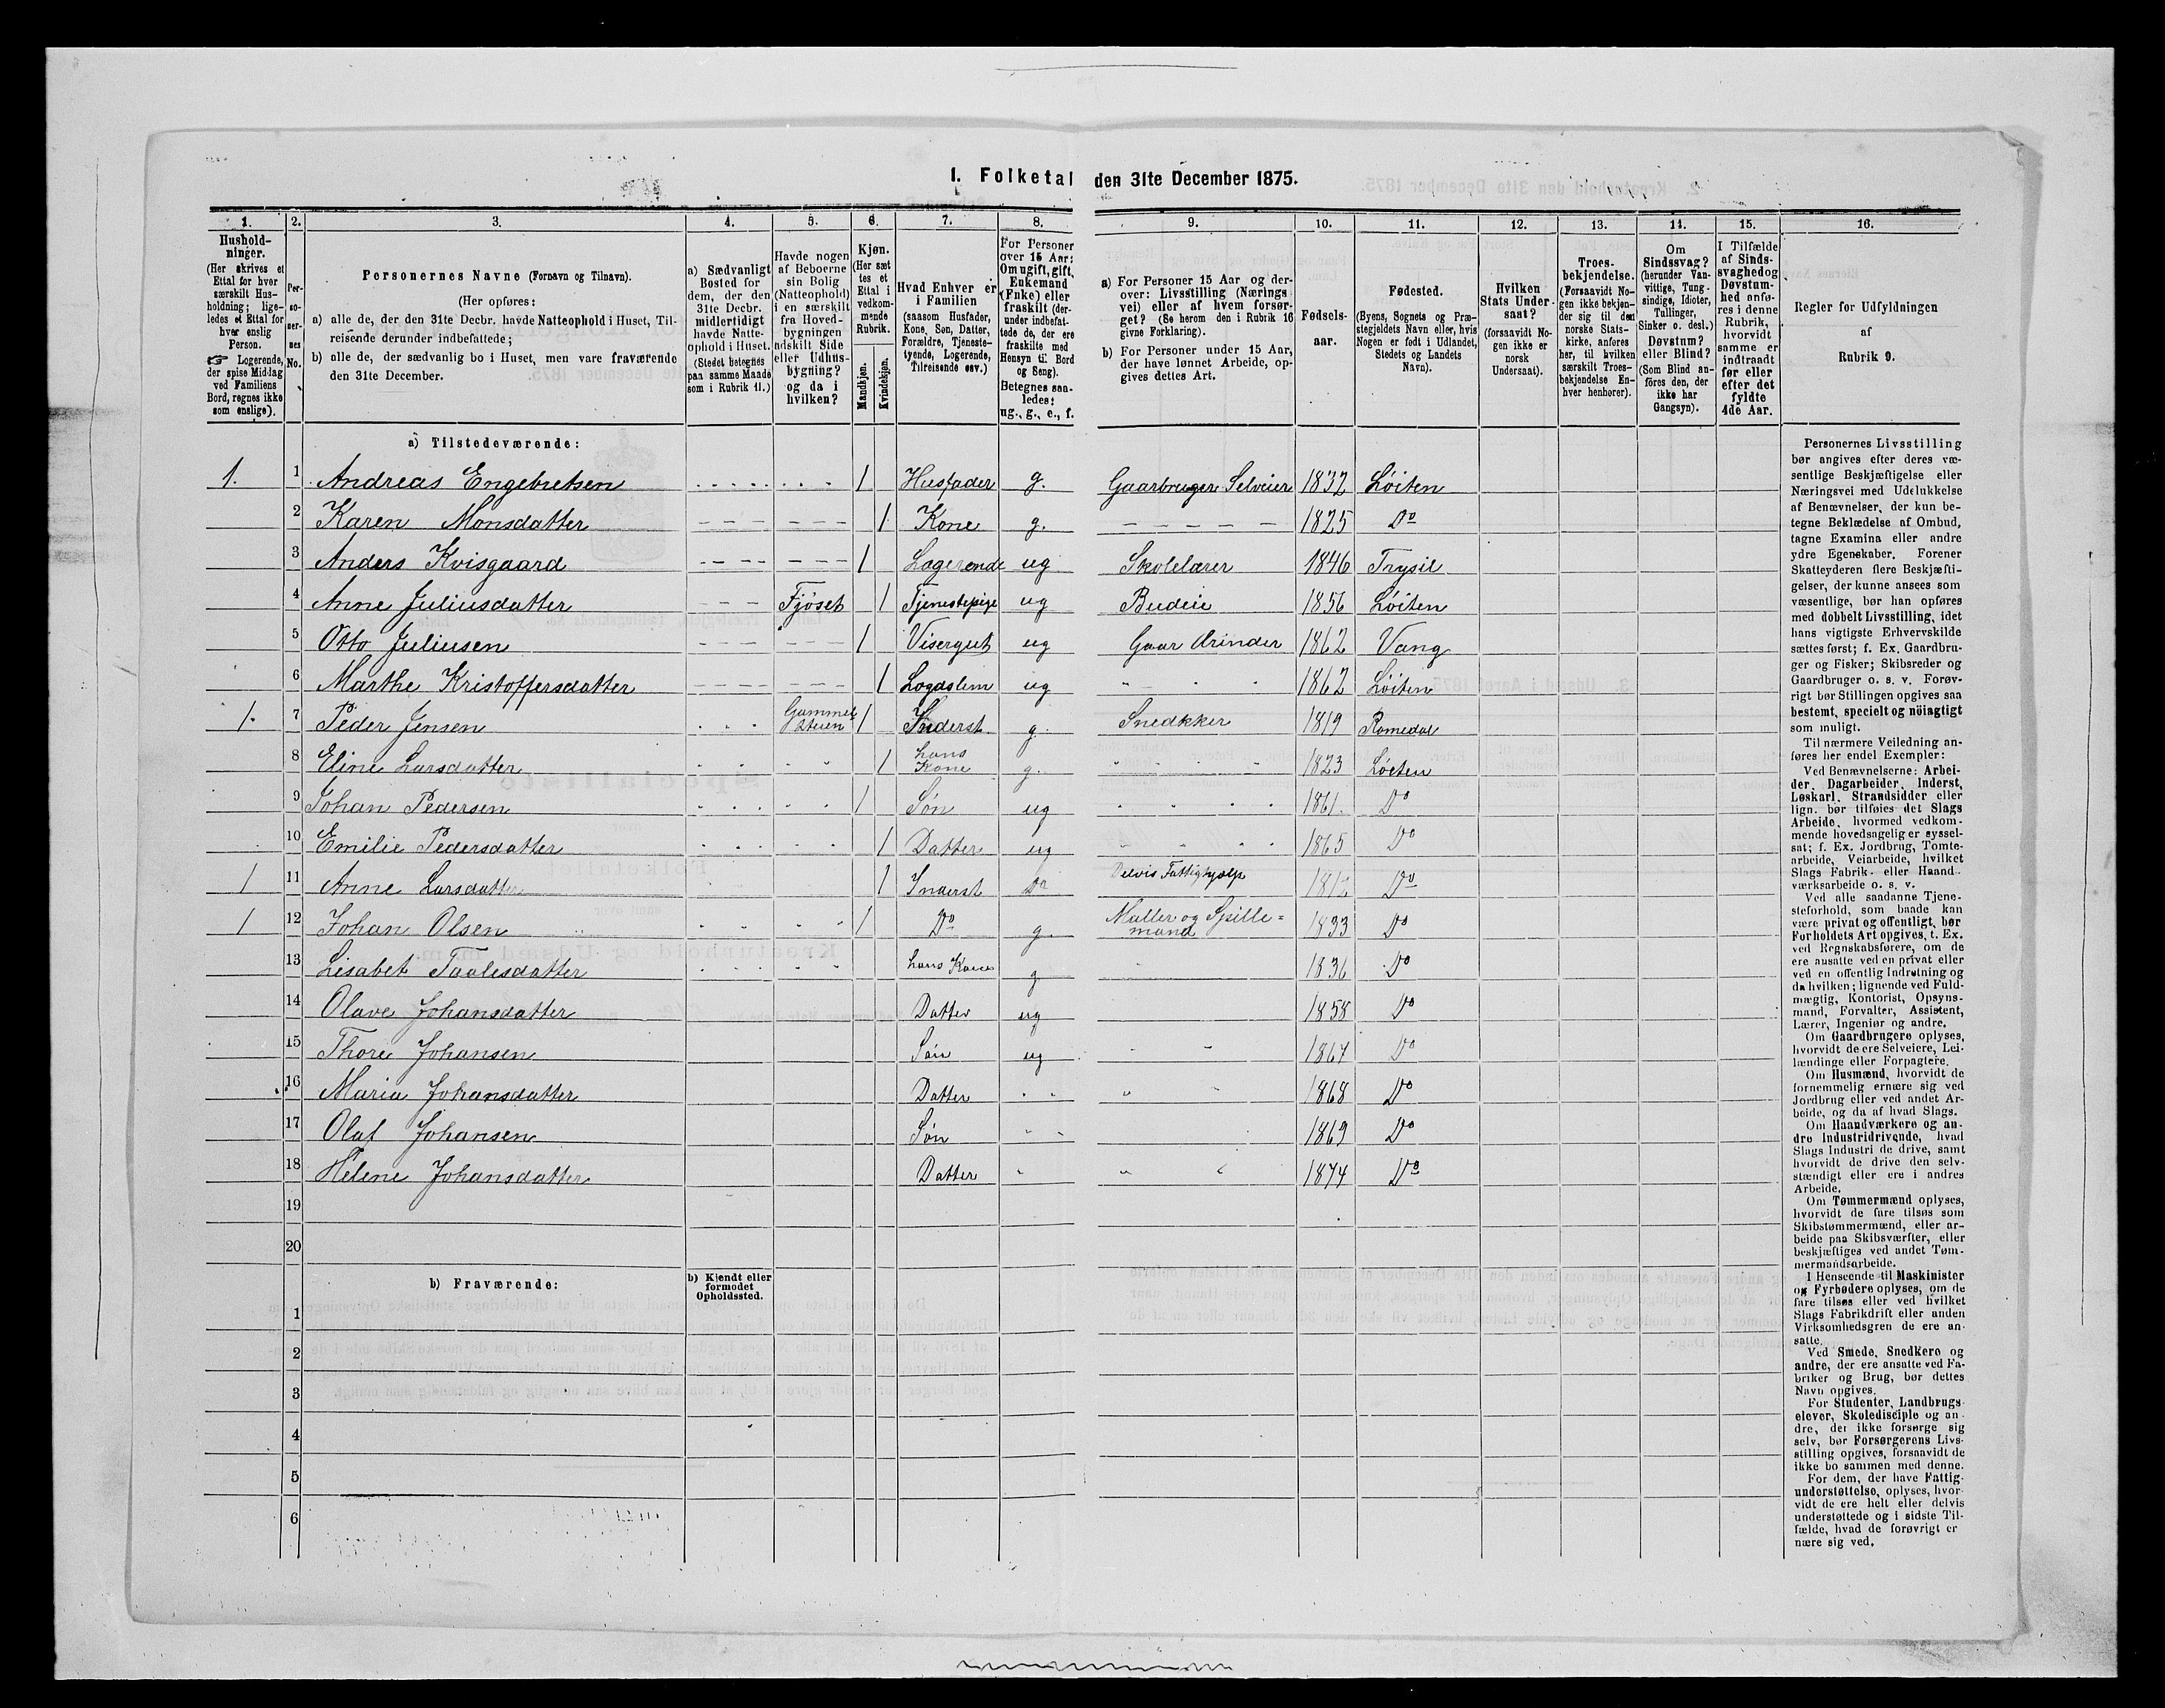 1. Folketal den 31te December 1875.
1. 2. 3. 4. 5. 6. 7. 8. 9. 10. 11. 12. 13. 14. 15. 16.
Hushold-
ninger.
(Her skrives et
Ettal for hver
særskilt Hus-
holdning; lige-
ledes et Ettal for
hver enslig
Person.
☞ Logerende,
der spise Middag
ved Familiens
Bord, regnes ikke
som enslige).
Per-
so-
ner-
nes
No.
Personernes Navne (Fornavn og Tilnavn).
(Her opføres:
a) alle de, der den 31te Decbr. havde Natteophold i Huset, Til-
reisende derunder indbefattede;
b) alle de, der sædvanlig bo i Huset, men vare fraværende
den 31te December.
a) Sædvanligt
Bosted for
dem, der den
31te Decbr.
midlertidigt
havde Natte-
ophold i Huset.
(Stedet betegnes
paa samme Maade
som i Rubrik 11.)
Havde nogen
af Beboerne
sin Bolig
(Natteophold)
i en særskilt
fra Hoved-
bygningen
adskilt Side
eller Udhus-
bygning?
og da i
hvilken?
Kjøn.
(Her sæt-
tes et
Ettal i
vedkom-
mende
Rubrik.
Mandkjøn.
Kvindekjøn.
Hvad Enhver er
i Familien
(saasom Husfader,
Kone, Søn, Datter,
Forældre, Tjeneste-
tyende, Logerende,
Tilreisende osv.)
For Personer
over 15 Aar:
Om ugift, gift,
Enkemand
(Enke) eller
fraskilt (der-
under indbefat-
tede de, der ere
fraskilte med
Hensyn til Bord
og Seng).
Betegnes saa-
ledes:
ug., g., e., f.
a) For Personer 15 Aar og der-
over: Livsstilling (Nærings-
vei) eller af hvem forsør-
get? (Se herom den i Rubrik 16
givne Forklaring).
b) For Personer under 15 Aar,
der have lønnet Arbeide, op-
gives dettes Art.
Fødsels-
aar.
Fødested.
(Byens, Sognets og Præ-
stegjeldets Navn eller, hvis
Nogen er født i Udlandet,
Stedets og Landets
Navn).
Hvilken
Stats Under-
saat?
(forsaavidt No-
gen ikke er
norsk
Undersaat).
Troes-
bekjendelse.
(Forsaavidt No-
gen ikke bekjen-
der sig til den
norske Stats-
kirke, anføres
her, til hvilken
særskilt Troes-
bekjendelse En-
hver henhører).
Om
Sindssvag?
(herunder Van-
vittige, Tung-
sindige, Idioter,
Tullinger,
Sinker o. desl.)
Døvstum?
eller Blind?
(Som Blind an-
føres den, der
ikke har
Gangsyn).
I Tilfælde
af Sinds-
svaghed og
Døvstum-
hed anfø-
res i denne
Rubrik,
hvorvidt
samme er
indtraadt
før eller
efter det
fyldte
4de Aar.
Regler for Udfyldningen
af
Rubrik 9.
a) Tilstedeværende:
1. 1 Andreas Engebretsen 1 Husfader g. Gaarbruger Selveier 1832 Løiten
2 Karen Monsdatter 1 Kone g. 1825 Do
3 Anders Kvisgaard 1 Logerende ug Skolelærer 1846 Trysil
4 Anne Juliusdatter Fjøset 1 Tjenestepige ug Budeie 1856 Løiten
5 Otto Juliusen 1 Visergut ug Gaar Arinder 1862 Vang
6 Marthe Kristoffersdatter 1 Logdslem ug 1862 Løiten
1. 7 Peder Jensen Gammelstuen 1 Inderst g. Snedkker 1819 Romedal
8 Eline Larsdatter 1 hans Kone g. 1823 Løiten
9 Johan Pedersen 1 Søn ug 1861. Do
10 Emilie Pedersdatter 1 Datter ug 1865 Do
1 11 Anne Larsdatter 1 Inderst Do Delvis Fattighjælp 1812 Do
1 12 Johan Olsen 1 Do g. Maller og Spille=mand 1833 Do
13 Lisabet Taalesdatter hans Kone g 1836 Do
14 Olave Johansdatter Datter ug 1858 Do
15 Thore Johansen Søn ug 1867 Do
16 Maria Johansdatter Datter 1868 Do
17 Olaf Johansen Søn 1869 Do
18 Helene Johansdatter Datter 1874 Do
19
20
b) Fraværende:
b) Kjendt eller
formodet
Opholdssted.
1
2
3
4
5
6
Personernes Livsstilling
bør angives efter deres væ-
sentlige Beskjæftigelse eller
Næringsvei med Udelukkelse
af Benævnelser, der kun be-
tegne Beklædelse af Ombud,
tagne Examina eller andre
ydre Egenskaber. Forener
Skatteyderen flere Beskjæfti-
gelser, der kunne ansees som
væsentlige, bør han opføres
med dobbelt Livsstilling, idet
hans vigtigste Erhvervskilde
sættes først; f. Ex. Gaardbru-
ger og Fisker; Skibsreder og
Gaardbruger o. s. v. Forøv-
rigt bør Stillingen opgives saa
bestemt, specielt og nöiagtigt
som muligt.
Til nærmere Veiledning an-
føres her endel Exempler:
Ved Benævnelserne: Arbei-
der, Dagarbeider, Inderst,
Løskarl, Strandsidder eller
lign. bør tilføies det Slags
Arbeide, hvormed vedkom-
mende hovedsagelig er syssel-
sat; f. Ex. Jordbrug, Tomte-
arbeide, Veiarbeide, hvilket
Slags Fabrik- eller Haand-
værksarbeide o. s. v.
Ved alle saadanne Tjene-
steforhold, som baade kan
være privat og offentligt, bør
Forholdets Art opgives, t. Ex.
ved Regnskabsførere, om de
ere ansatte ved en privat eller
ved en offentlig Indretning og
da hvilken; lignende ved Fuld-
mægtig, Kontorist, Opsyns-
mand, Forvalter, Assistent,
Lærer, Ingeniør og andre.
Om Gaardbrugere oplyses,
hvorvidt de ere Selveiere, Lei-
lændinge eller Forpagtere.
Om Husmænd, hvorvidt de
fornemmelig ernære sig ved
Jordbrug eller ved andet Ar-
beide, og da af hvad Slags.
Om Haandværkere og an-
dre Industridrivende, hvad
Slags Industri de drive, samt
hvorvidt de drive den selv-
stændigt eller ere i andres
Arbeide.
Om Tømmermænd oplyses,
hvorvidt de fare tilsøs som
Skibstømmermænd, eller ar-
beide paa Skibsværfter, eller
beskjæftiges ved andet Tøm-
mermandsarbeide.
I Henseende til Maskinister
og Fyrbødere oplyses, om de
fare tilsøs eller ved hvilket
Slags Fabrikdrift eller anden
Virksomhedsgren de ere an-
satte.
Ved Smede, Snedkere og
andre, der ere ansatte ved Fa-
briker og Brug, bør dettes
Navn opgives.
For Studenter, Landbrugs-
elever, Skoledisciple og an-
dre, der ikke forsørge sig
selv, bør Forsørgerens Livs-
stilling opgives, forsaavidt de
ikke bo sammen med denne.
For dem, der have Fattig-
understøttelse, oplyses, hvor-
vidt de ere helt eller delvis
understøttede og i sidste Til-
fælde, hvad de forøvrigt er-
nære sig ved.